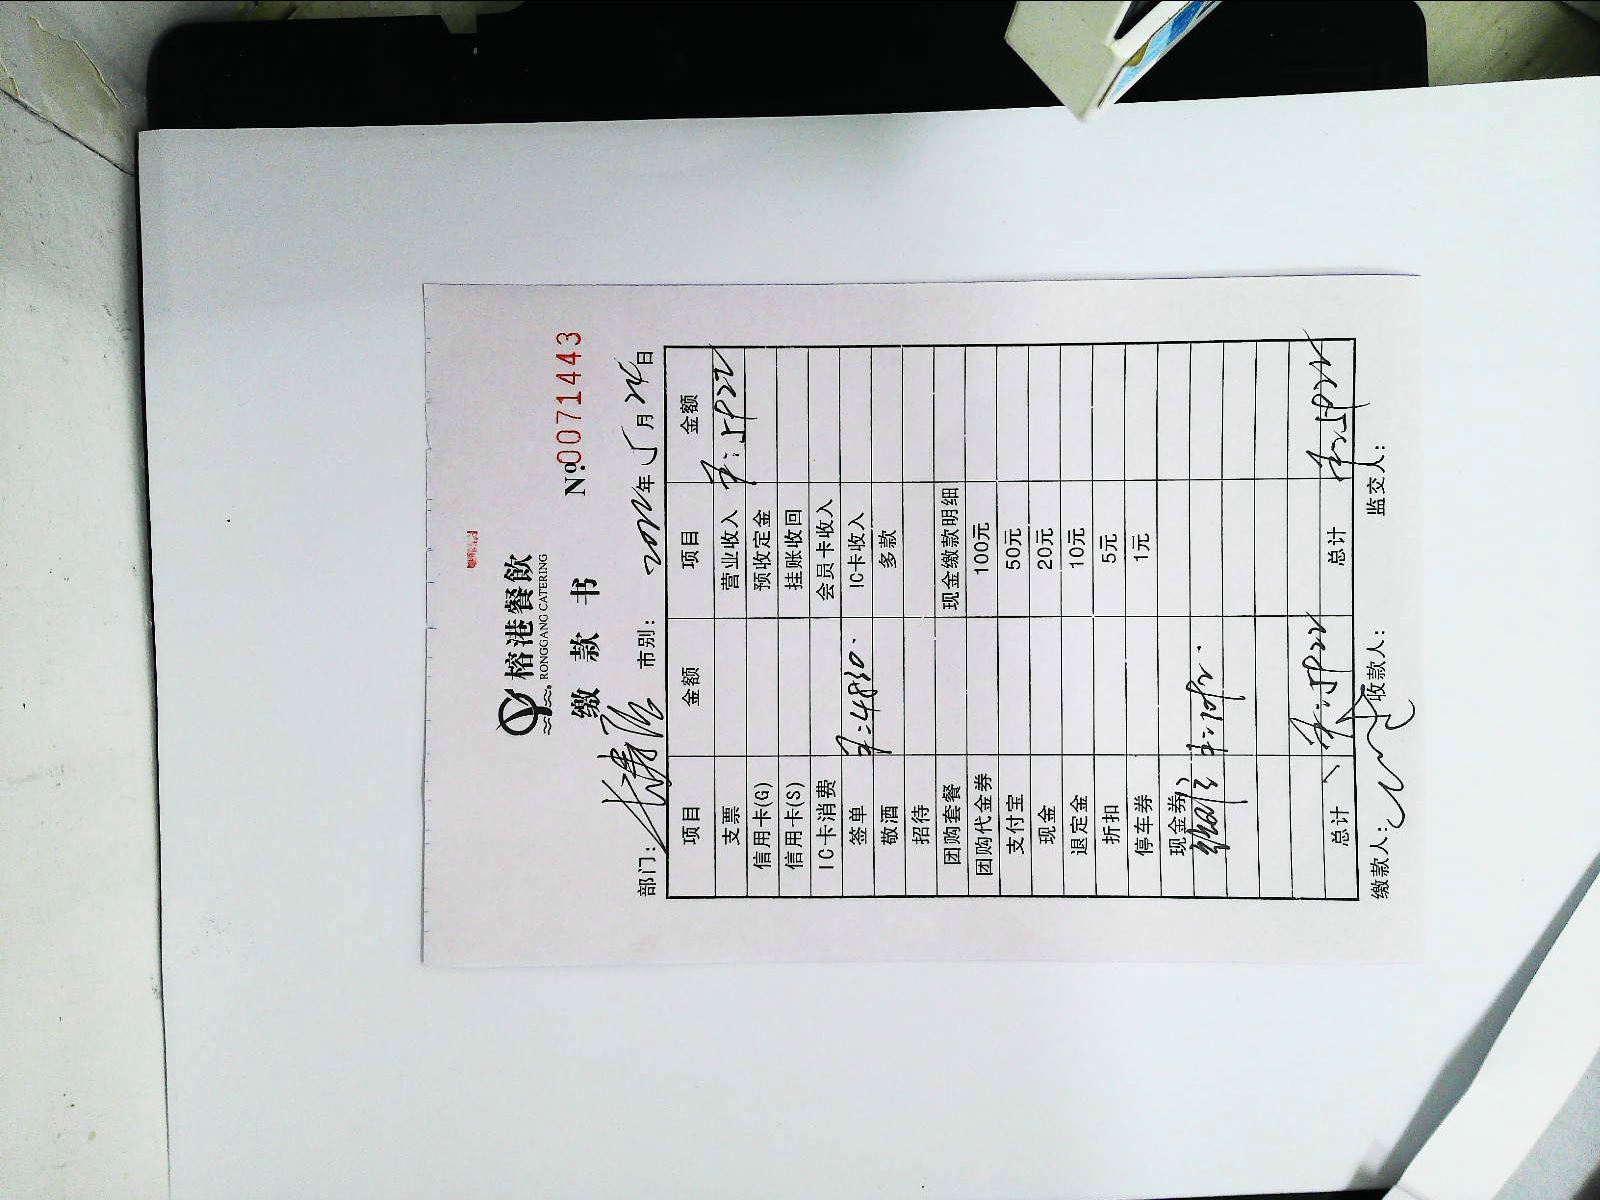 榕港餐飲
RONGGANG CATERING
缴款书 №0071443
部门: 市别: 2022年5月24日
项目 金额 项目 金额
支票 营业收入 5922
信用卡(G) 预收定金
信用卡(S) 挂账收回
IC卡消费 会员卡收入
签单 4830. IC卡收入
敬酒 多款
招待
团购套餐 现金缴款明细
团购代金券 100元
支付宝 50元
现金 20元
退定金 10元
折扣 5元
停车券 1元
现金券
1092.
总计 5922 总计 5922
缴款人: 收款人: 监交人: